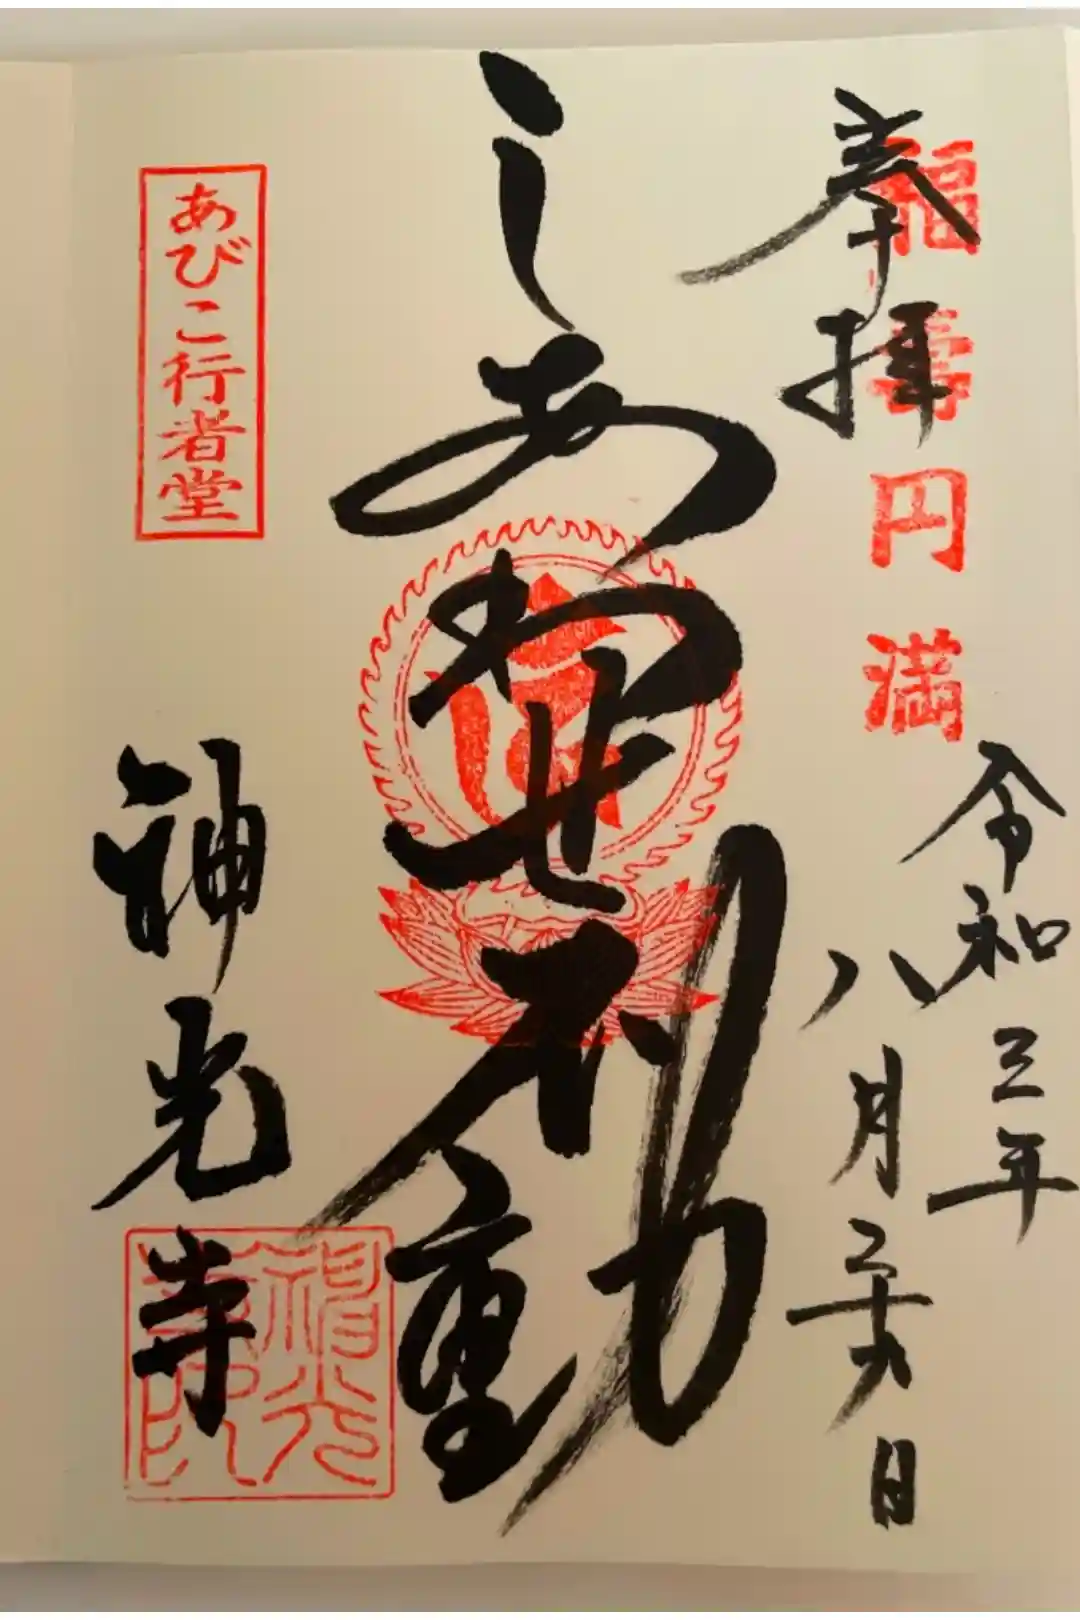 奉拝
福寿円満
令和三年
八月二十六日
しあわせ不動
あびこ行者堂
神光寺
神光寺印